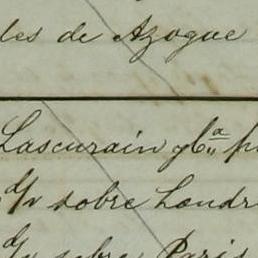 les de Azogue
Lascurain y Ca
sobre Londr
sobre Paris